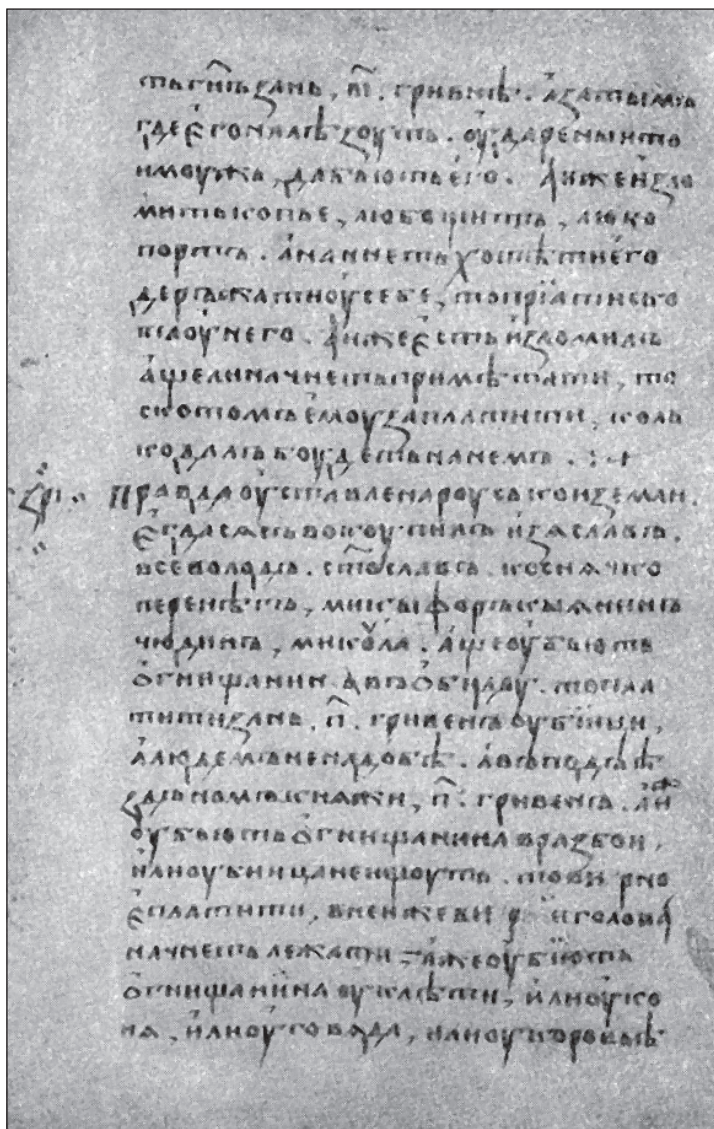 тьгн҃ъзань, в҃і. гривнѣ. азатымъ
гдеегоналѣзоуть. оудареныито
имоужь, дабьютьего. Аижеизло
митькопье, любощитъ, любо
портъ. аначнетьхотѣтиего
деръжатиоусебе, топріатискѡ
таоунего. Аижеестьизломилъ
ащелиначнетьпримѣтати, то
скотомъемоузаплатити, коль
кодалъбоудетьнанемъ. :+
Правдаоуставленароуськоиземли.
Егдасясъвокоупилъ изяславъ.
всеволодъ. ст҃ославъ. коснячко
перенѣгъ, микыфоръкыянинъ
чюдинъ, микула. ащеоубьють
огнищанина въобиду. топла
титизань. п҃. гривенъоубіици,
алюдемъненадобѣ. авъподъѣ
здьномъкняжи, п҃. гривенъ. аи
оубьютьогнищанинавразбои,
илиоубиицанеищоуть. товирно
еплатити, внеижевири головa
начнетьлежати. ажеоубіють
огнищанинаоуклѣти, илиоуко
ня, илиоуговяда, илиоукоровьѣ